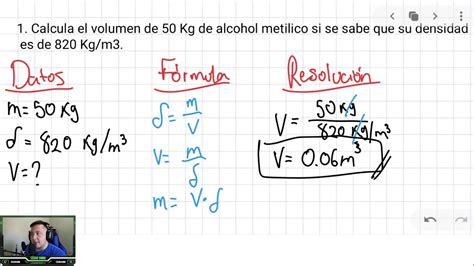 1. Calcula el volumen de 50 Kg de alcohol metilico si se sabe que su densidad
es de 820 Kg/m3.
Datos
m = 50 Kg
δ = 820 Kg/m³
V = ?
Fórmula
δ = m/V
V = m/δ
m = V·δ
Resolución
V = 50 Kg / 820 Kg/m³
V = 0.06 m³